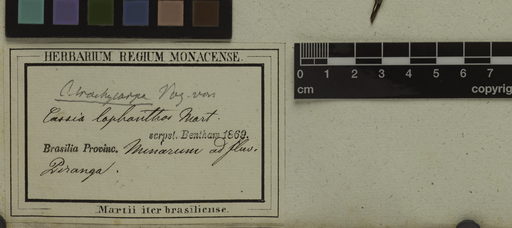 HERBARIUM REGIUM MONACENSE.
C. brachycarpa Vog. var
Cassia lophanthos Mart.
scrpst. Bentham 1869.
Brasilia Provinc. Minarum ad fluv.
Piranga.
Martii iter brasiliense.
0 1 2 3 4 5 6 7
cm copyrig